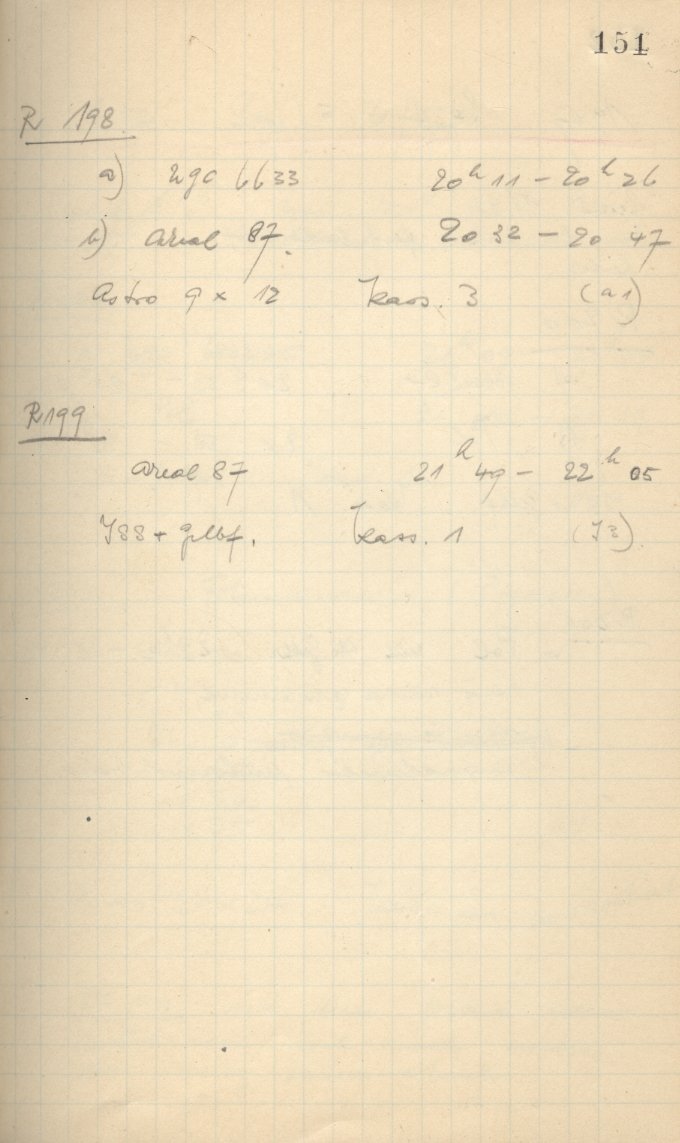 151
R 198
a) NGC 6633 20h 11 - 20h 26
b) Areal 87. 20 32 - 20 47
Astro 9 x 12 Kass. 3 (a1)
R 199
Areal 87 21h 49 - 22h 05
ISS + gelbf. Kass. 1 (I3)